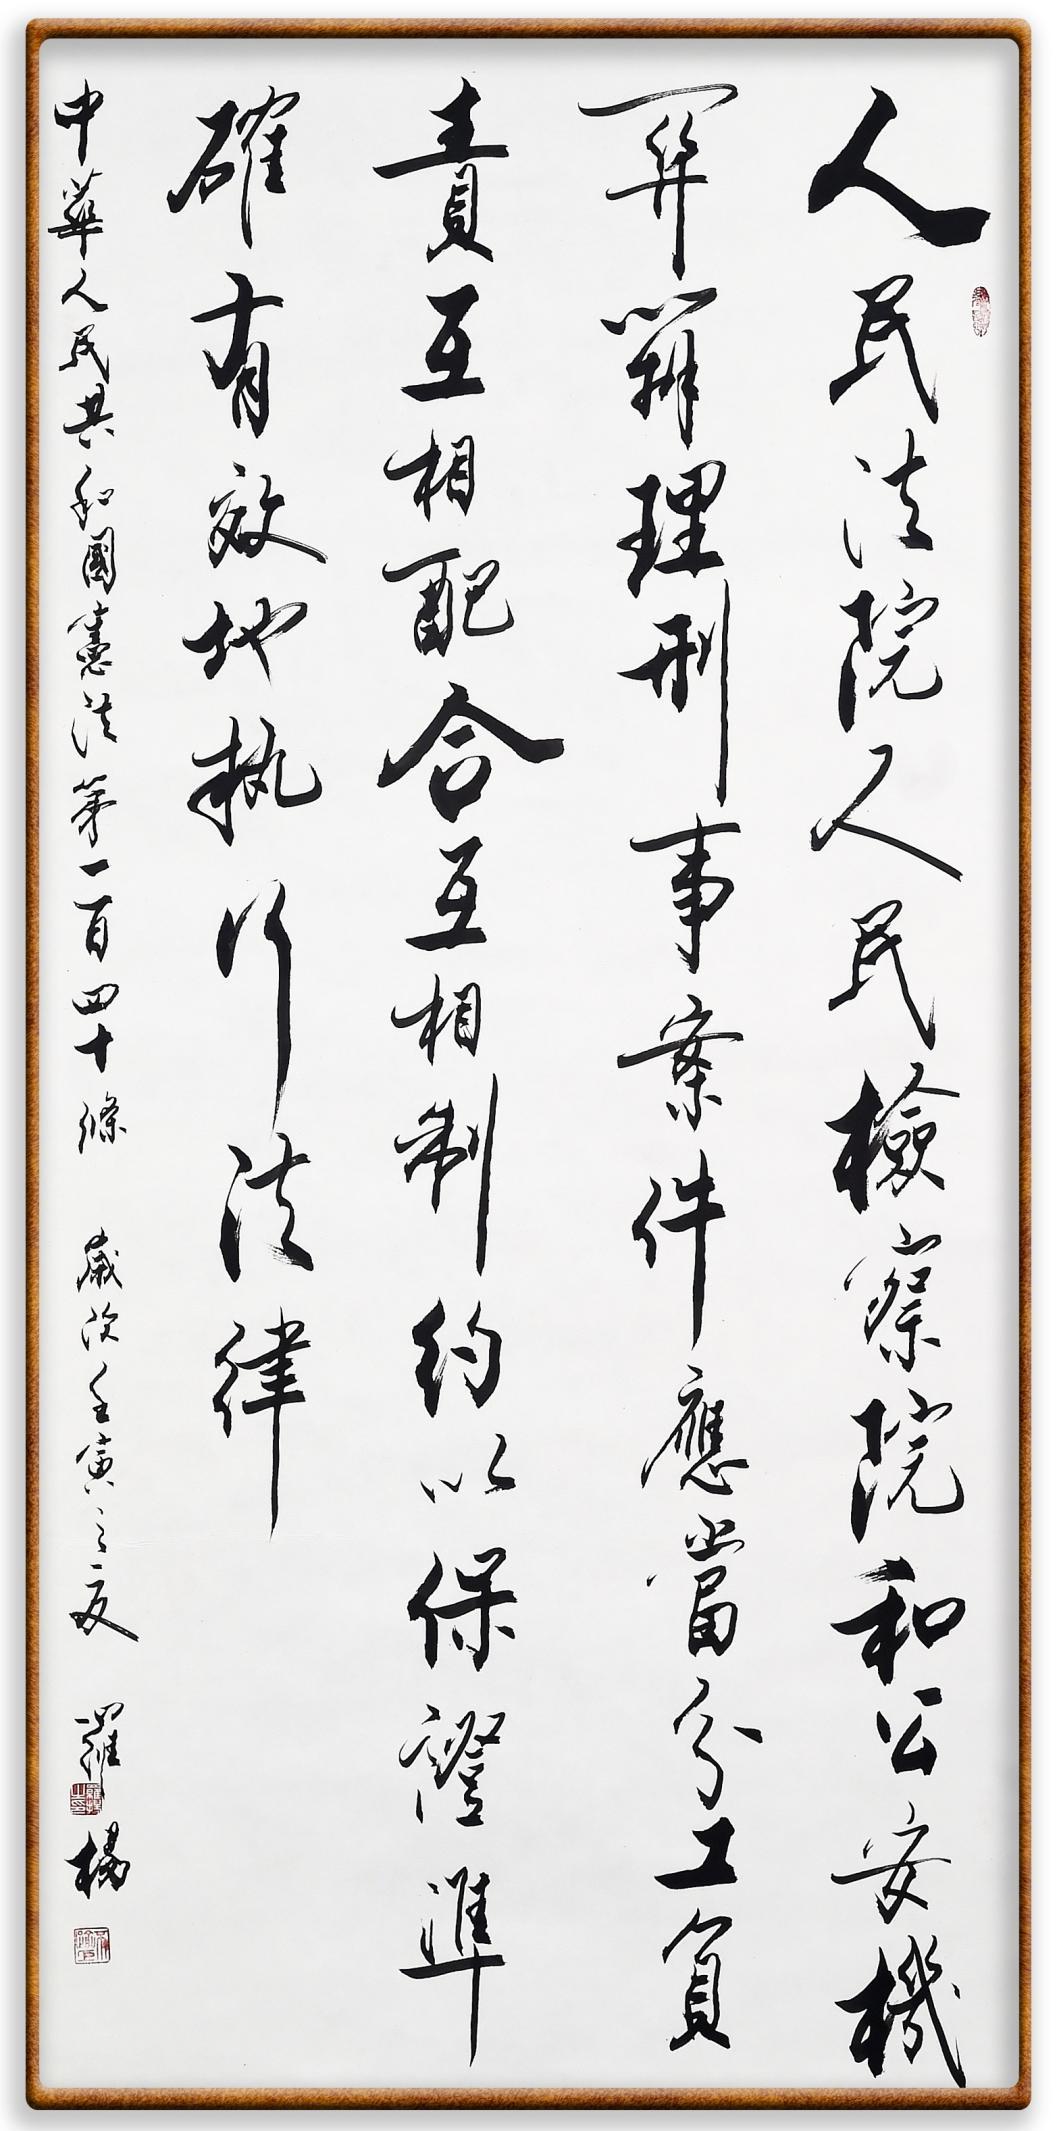 人民法院人民檢察院和公安機
関辦理刑事案件應當分工負
責互相配合互相制約以保證準
確有效地执行法律
中華人民共和國憲法第一百四十條 歲次壬寅之夏 羅楊